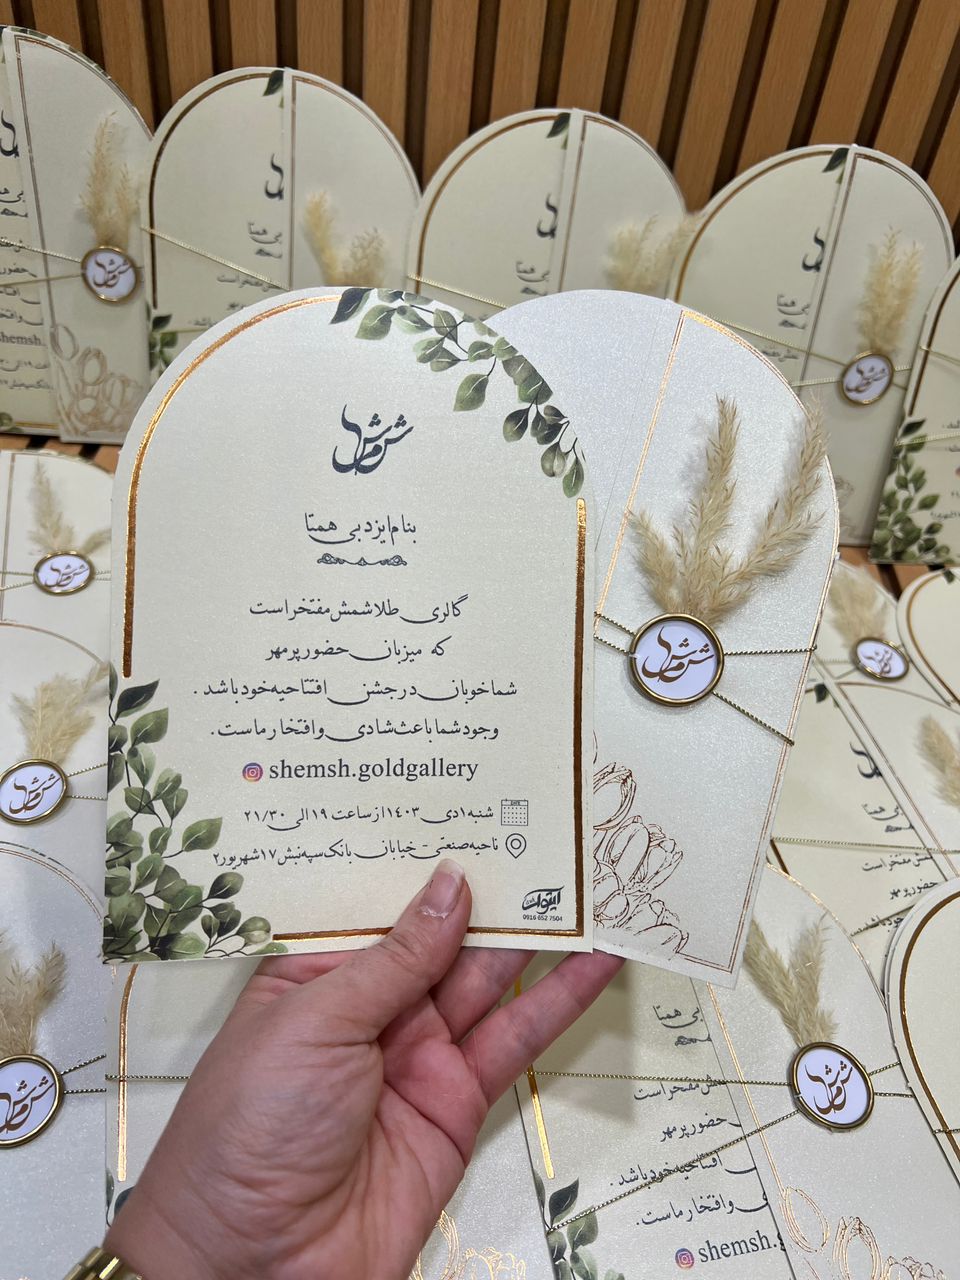 شمش
بنام ایزد بی همتا
گالری طلا شمش مفتخر است
که میزبان حضور پر مهر
شما خوبان در جشن افتتاحیه خود باشد .
وجود شما باعث شادی و افتخار ماست .
shemsh.goldgallery
شنبه ۱ دی ۱۴۰۳ از ساعت ۱۹ الی ۲۱/۳۰
ناحیه صنعتی - خیابان بانک سپه نبش ۱۷ شهریور ۲
0916 652 7504
شمش
بی همتا
شمش مفتخر است
حضور پر مهر
افتتاحیه خود باشد .
و افتخار ماست .
shemsh.g